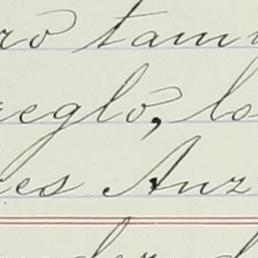 ro tam
reglo, lo
res Anz
der d